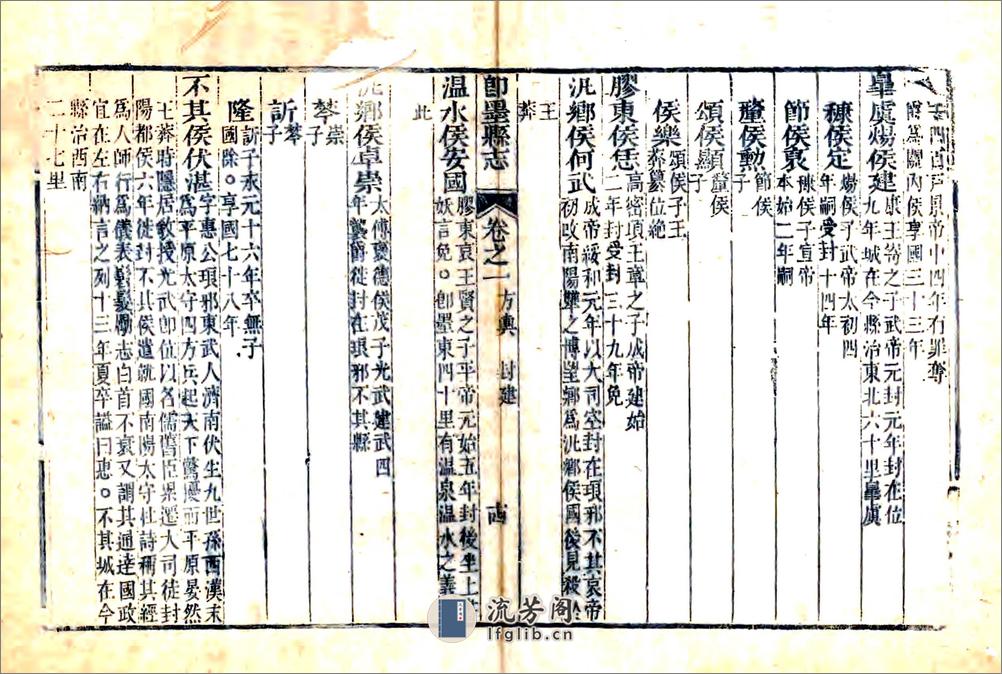 戶景帝中四年有罪奪
爵爲關內侯享國三十三年
皐虞煬侯建康王寄之子武帝元封元年封在位
九年城在今縣治東北六十里皐虞
穅侯定煬侯子武帝太初四
年嗣受封十四年
節侯㐮穅侯子宣帝
本始二年嗣
釐侯勲節侯
子
頌侯顯釐侯
子
侯樂頌侯子王
莽篡位絶
膠東侯恁高密頃王章之子成帝建始
二年封受封三十九年免
汎鄉侯何武成帝綏和元年以大司空封在琅邪不其哀帝
初改南陽犨之博望鄉爲汎鄉侯國後見殺於
王
莽
卽墨縣志 卷之一 方輿 封建 十四
溫水侯安國膠東哀王賢之子平帝元始五年封後坐上
妖言免。卽墨東四十里有溫泉溫水之義
此
汎鄉侯卓崇太傅褒德侯茂子光武建武四
年襲爵徙封在琅邪不其縣
棽崇
子
訢棽
子
隆訢子永元十六年卒無子
國除。享國七十八年
不其侯伏湛字惠公琅邪東武人濟南伏生九世孫西漢末
爲平原太守四方兵起天下驚擾而平原晏然
王莽時隱居敎授光武卽位以名儒舊臣累遷大司徒封
陽都侯六年徙封不其侯遣就國南陽太守杜詩稱其經
爲人師行爲儀表髫髮勵志白首不衰又謂其通達國政
宜在左右納言之列十三年夏卒謚曰惠。不其城在今
縣治西南
二十七里
流芳閣
lfglib.cn